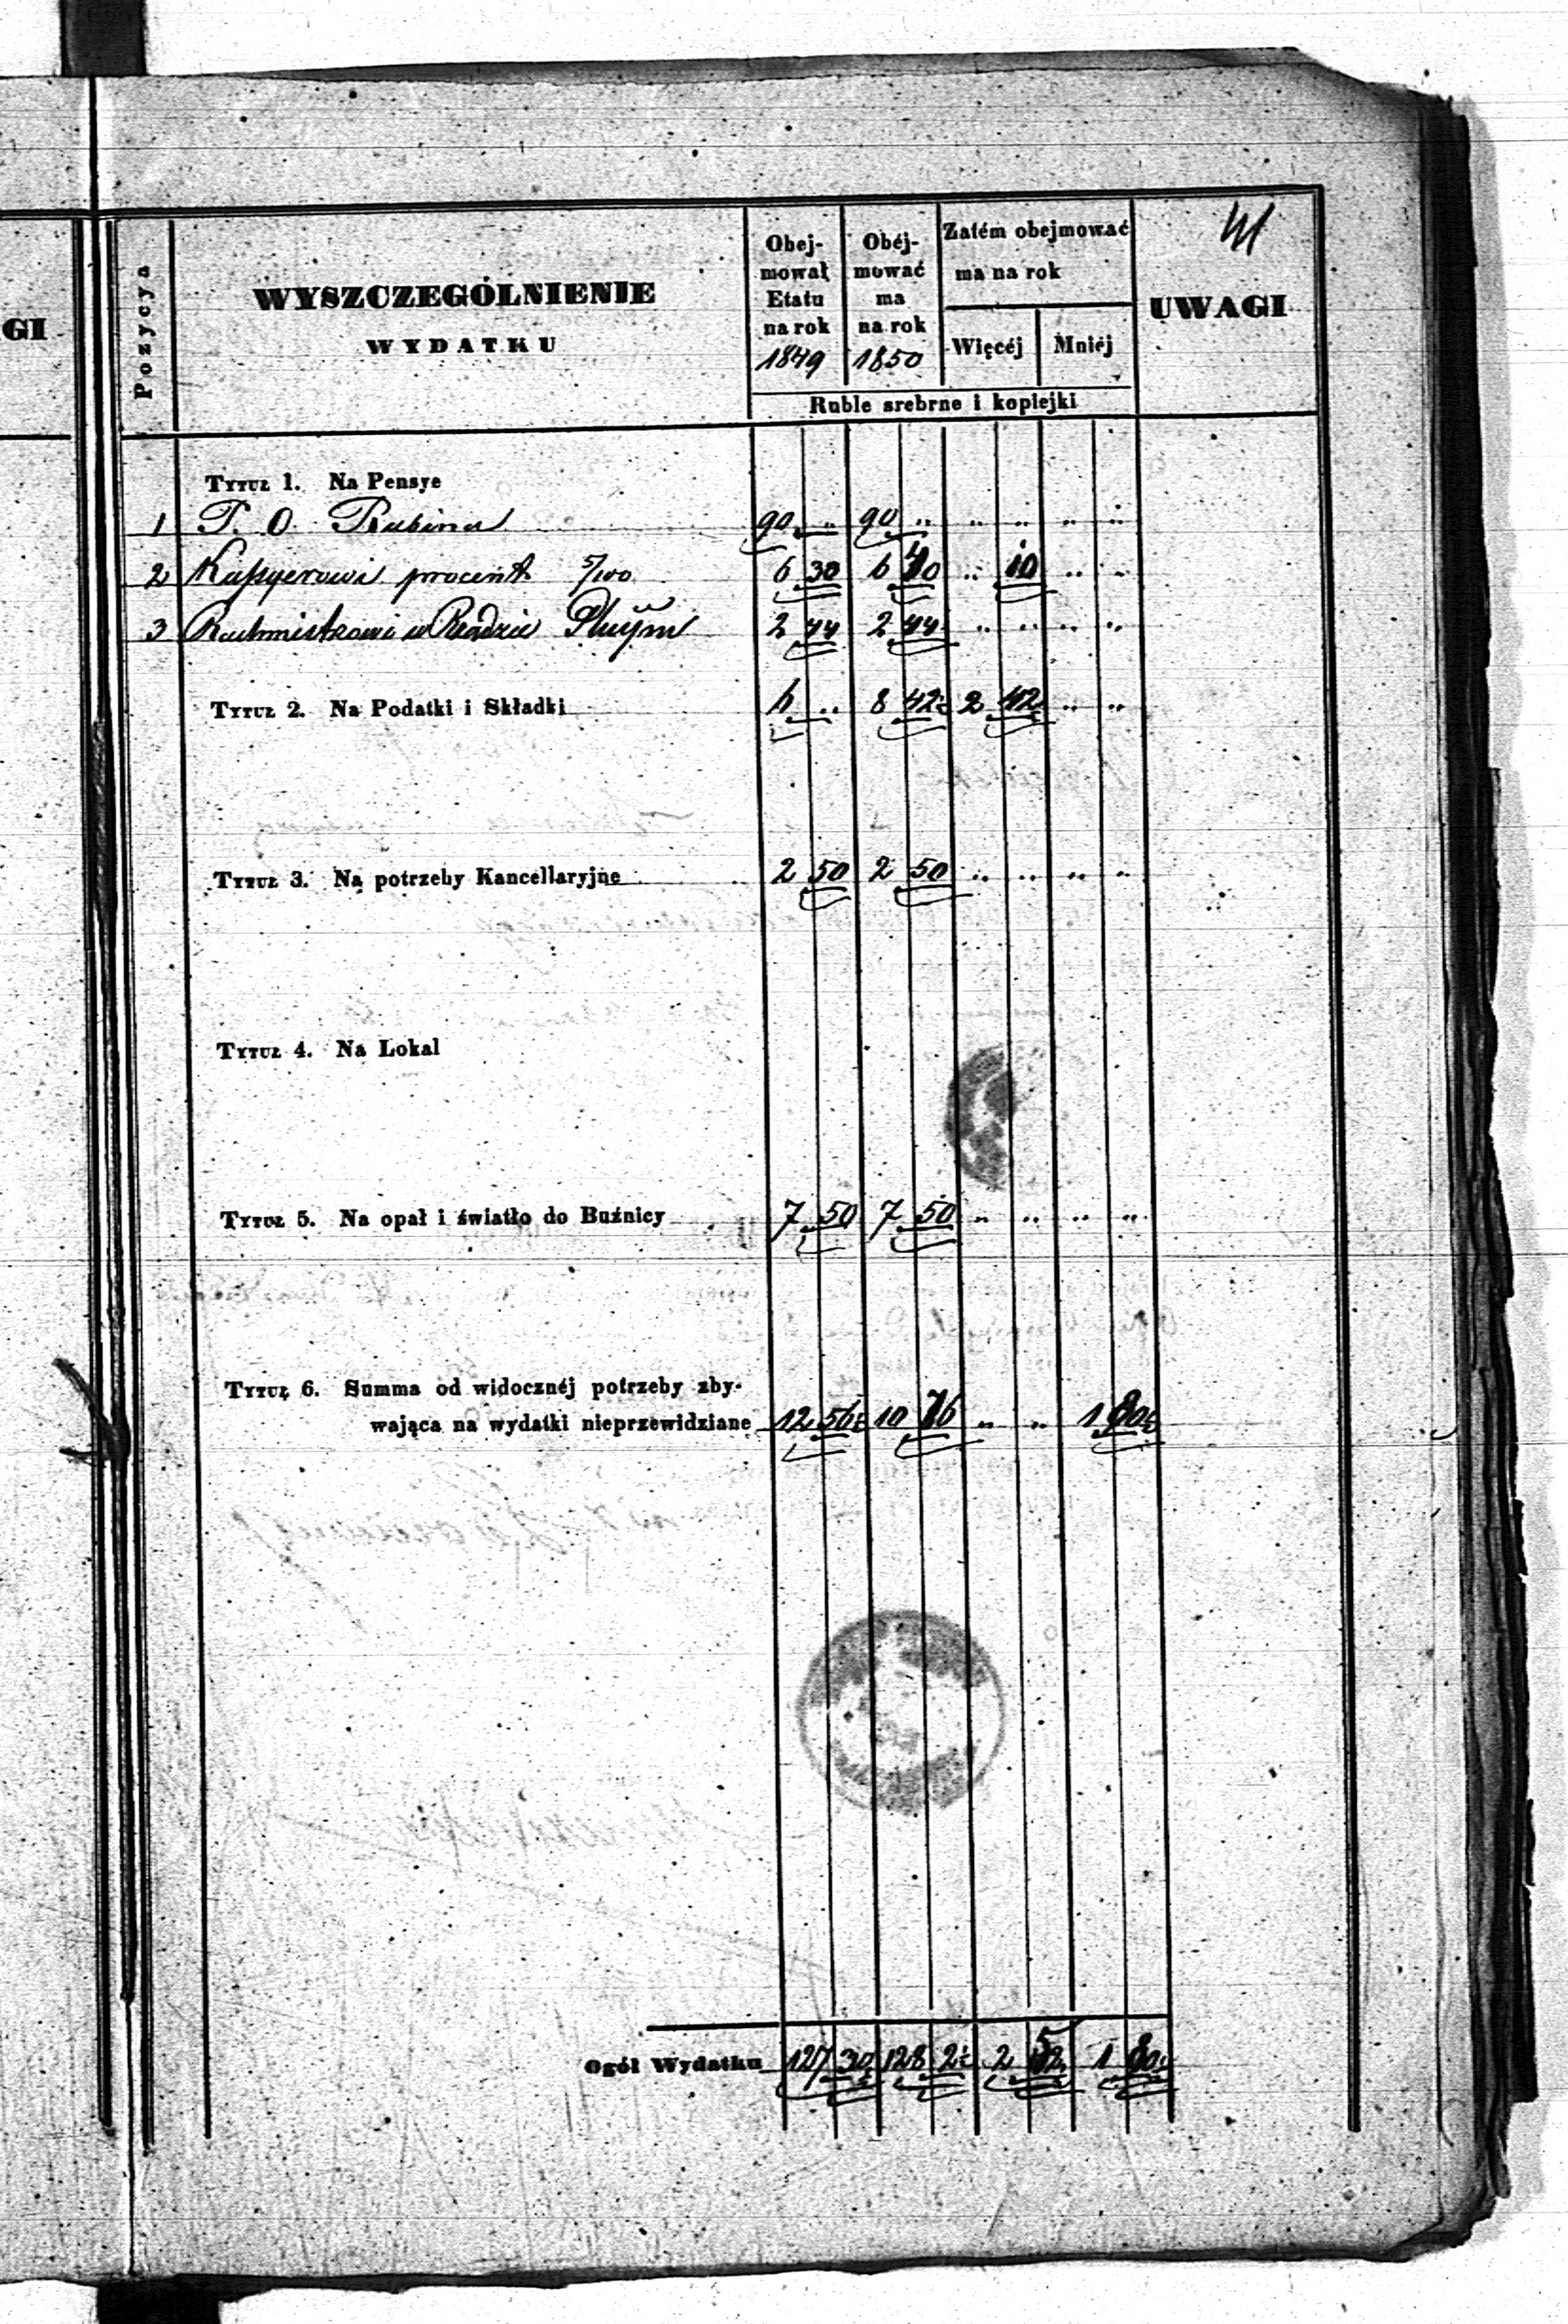 41
GI
Pozycya
WYSZCZEGÓLNIENIE
WYDATKU
Obej-
mował
Etatu
na rok
1849
Obéj-
mować
ma
na rok
1850
Zatém obejmować
ma na rok
Więcéj
Mniéj
UWAGI
Ruble srebrne i kopiejki
Tytuł 1. Na Pensye
1 P. O Rabina 90 „ 90 „ „ „ „ „
2 Kassyerowi procent 5/100 6 30 6 40 „ 10 „ „
3 Rachmistrzowi w Radzie 2 44 2 44 „ „ „ „
Tytuł 2. Na Podatki i Składki 6 „ 8 42½ 2 42½ „ „
Tytuł 3. Na potrzeby Kancellaryjne 2 50 2 50 „ „ „ „
Tytuł 4. Na Lokal
Tytuł 5. Na opał i światło do Buźnicy 7 50 7 50 „ „ „ „
Tytuł 6. Summa od widocznéj potrzeby zby-
wająca na wydatki nieprzewidziane 12 56½ 10 76 „ „ 1 80½
Ogół Wydatku 127 30½ 128 2½ 2 52½ 1 80½